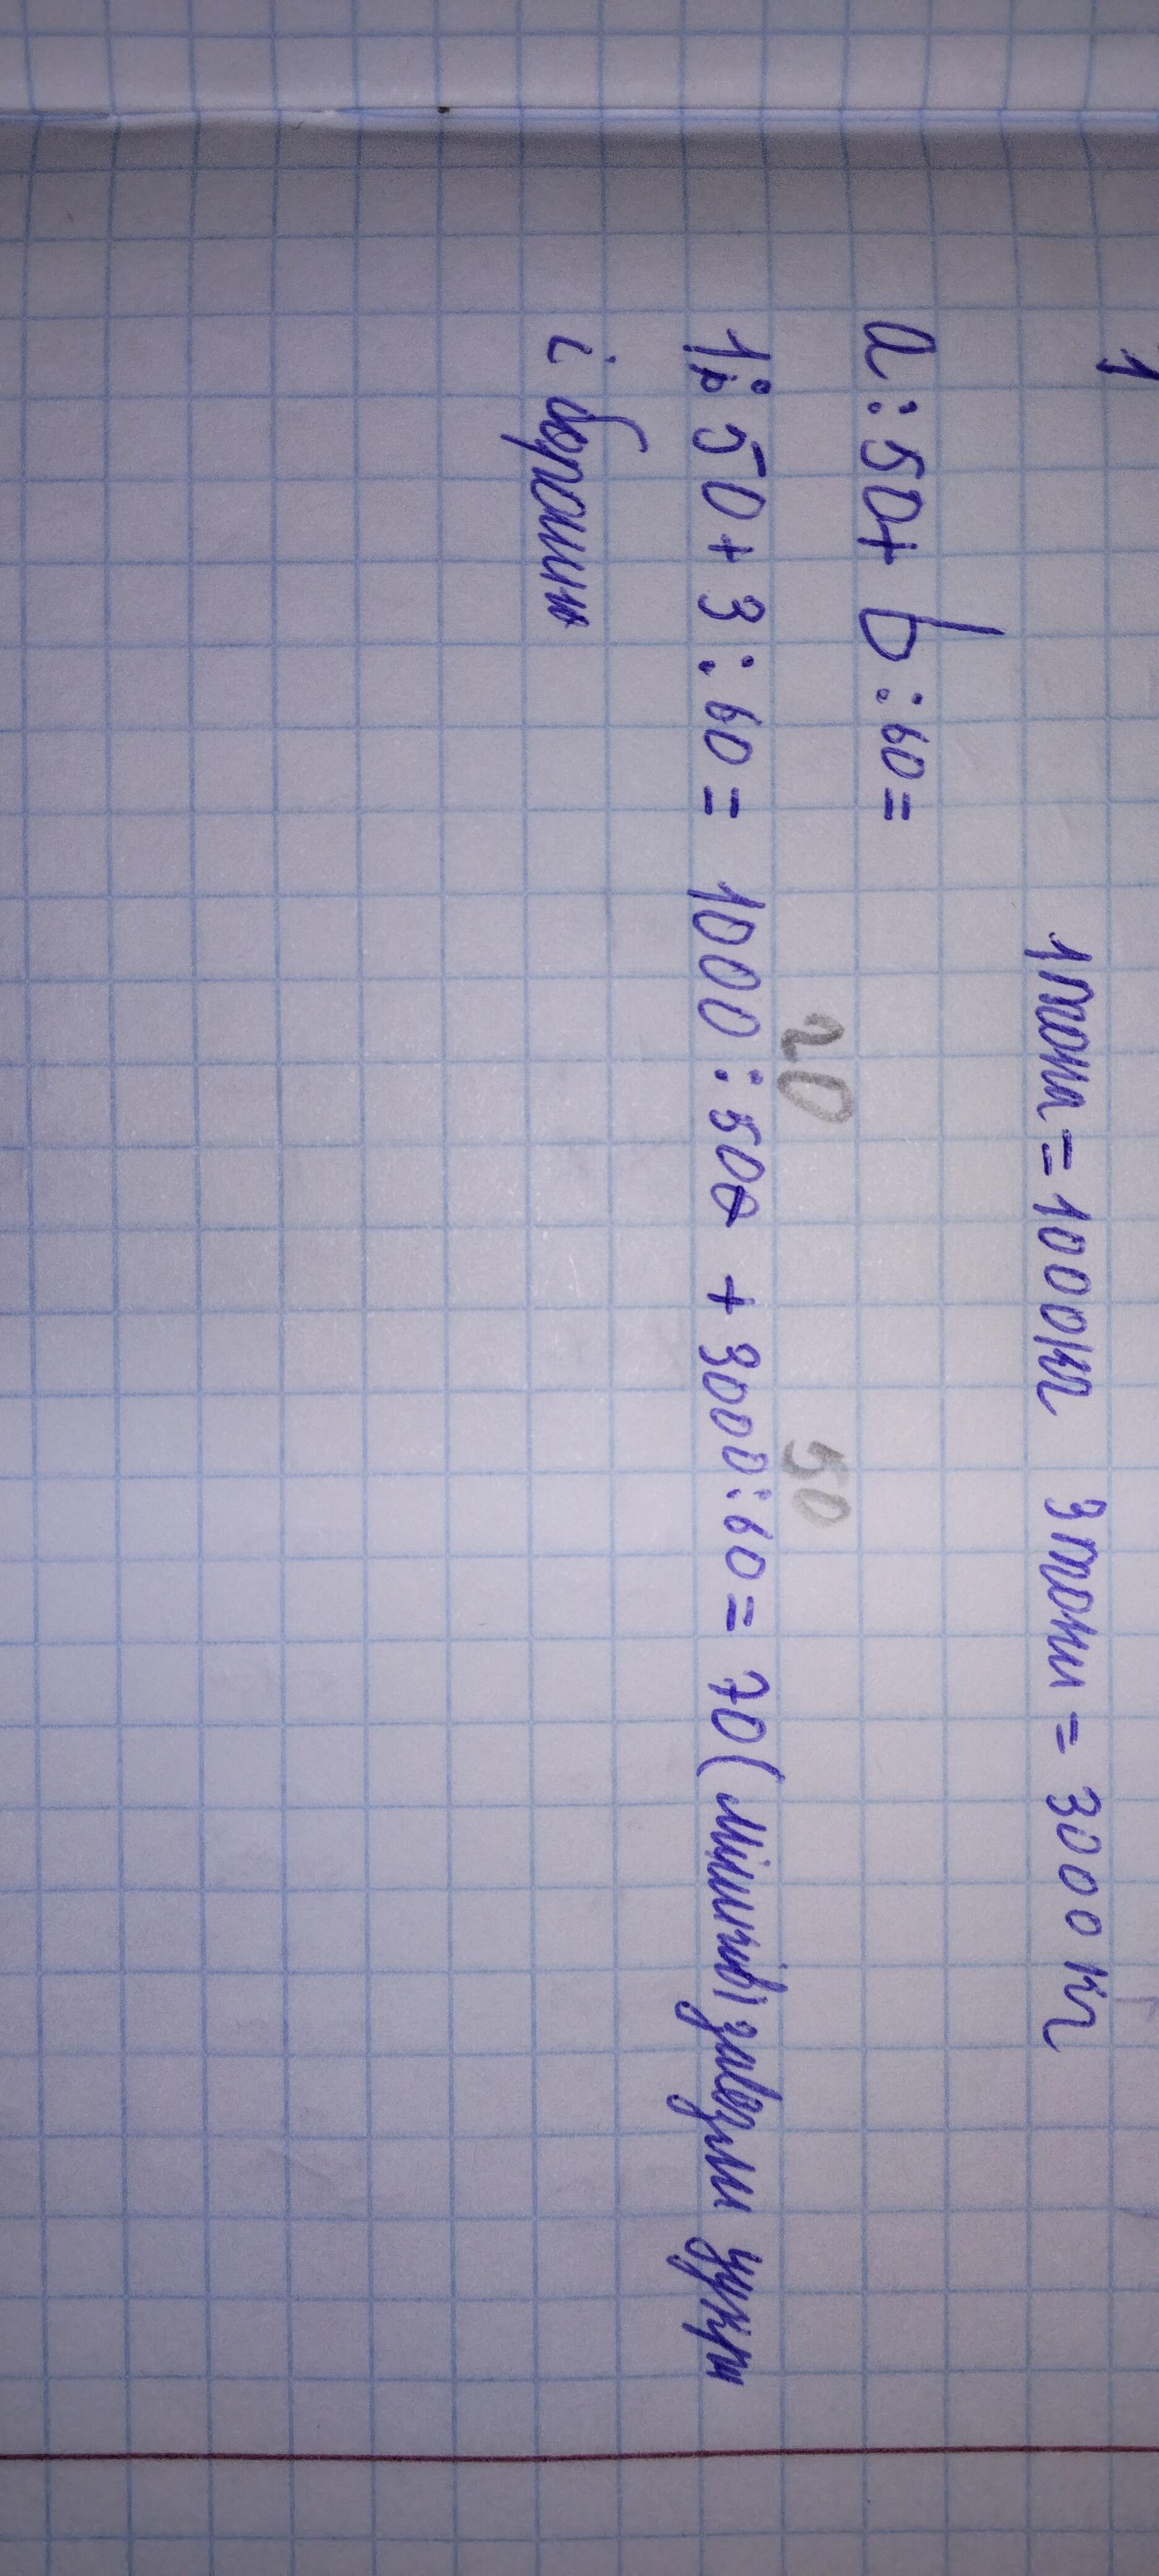 1
1тонна = 1000кг 3тони = 3000 кг
a : 50 + b : 60 =
20 50
1 : 50 + 3 : 60 = 1000 : 50 + 3000 : 60 = 70 (мішків) завезли цукру
і борошна